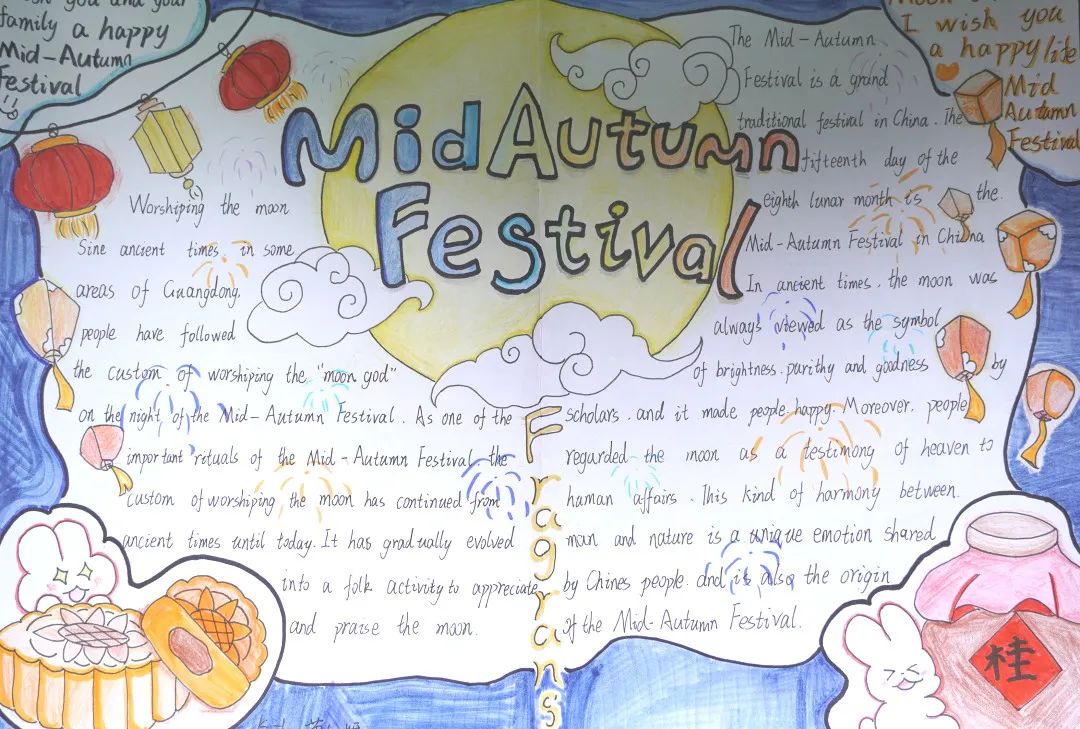 you and your
family a happy
Mid-Autumn
Festival
I wish you
a happy life
Mid
Autumn
Festival
Mid Autumn
Festival
Worshiping the moon
Sine ancient times in some
areas of Guangdong,
people have followed
the custom of worshiping the "moon god"
on the night of the Mid-Autumn Festival. As one of the
important rituals of the Mid-Autumn Festival, the
custom of worshiping the moon has continued from
ancient times until today. It has gradually evolved
into a folk activity to appreciate
and praise the moon.
Fragrans
The Mid-Autumn
Festival is a grand
traditional festival in China. The
fifteenth day of the
eighth lunar month is the.
Mid-Autumn Festival in China
In ancient times. the moon was
always viewed as the symbol
of brightness. purithy and goodness by
scholars. and it made people happy. Moreover. people
regarded the moon as a testimong of heaven to
human affairs. This kind of harmony between.
man and nature is a unique emotion shared
by Chines people. and it is also the origin
of the Mid-Autumn Festival.
桂